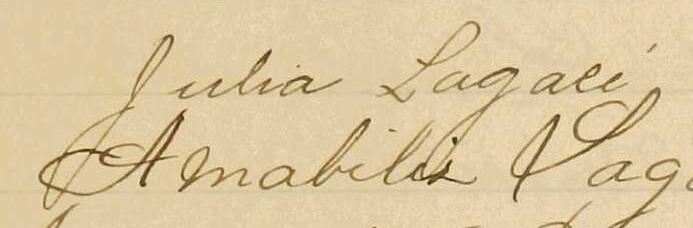 Julia Lagacé
Amabilis Lag